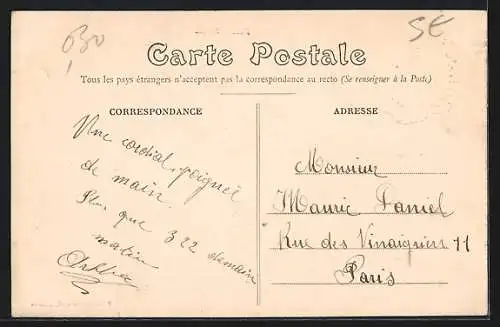 Carte Postale
Tous les pays étrangers n'acceptent pas la correspondance au recto (Se renseigner à la Poste)
CORRESPONDANCE
ADRESSE
Une cordial poignée
de main
Plus que 322 demain
matin
Monsieur
Mauric Daniel
Rue des Vinaigriers 11
Paris